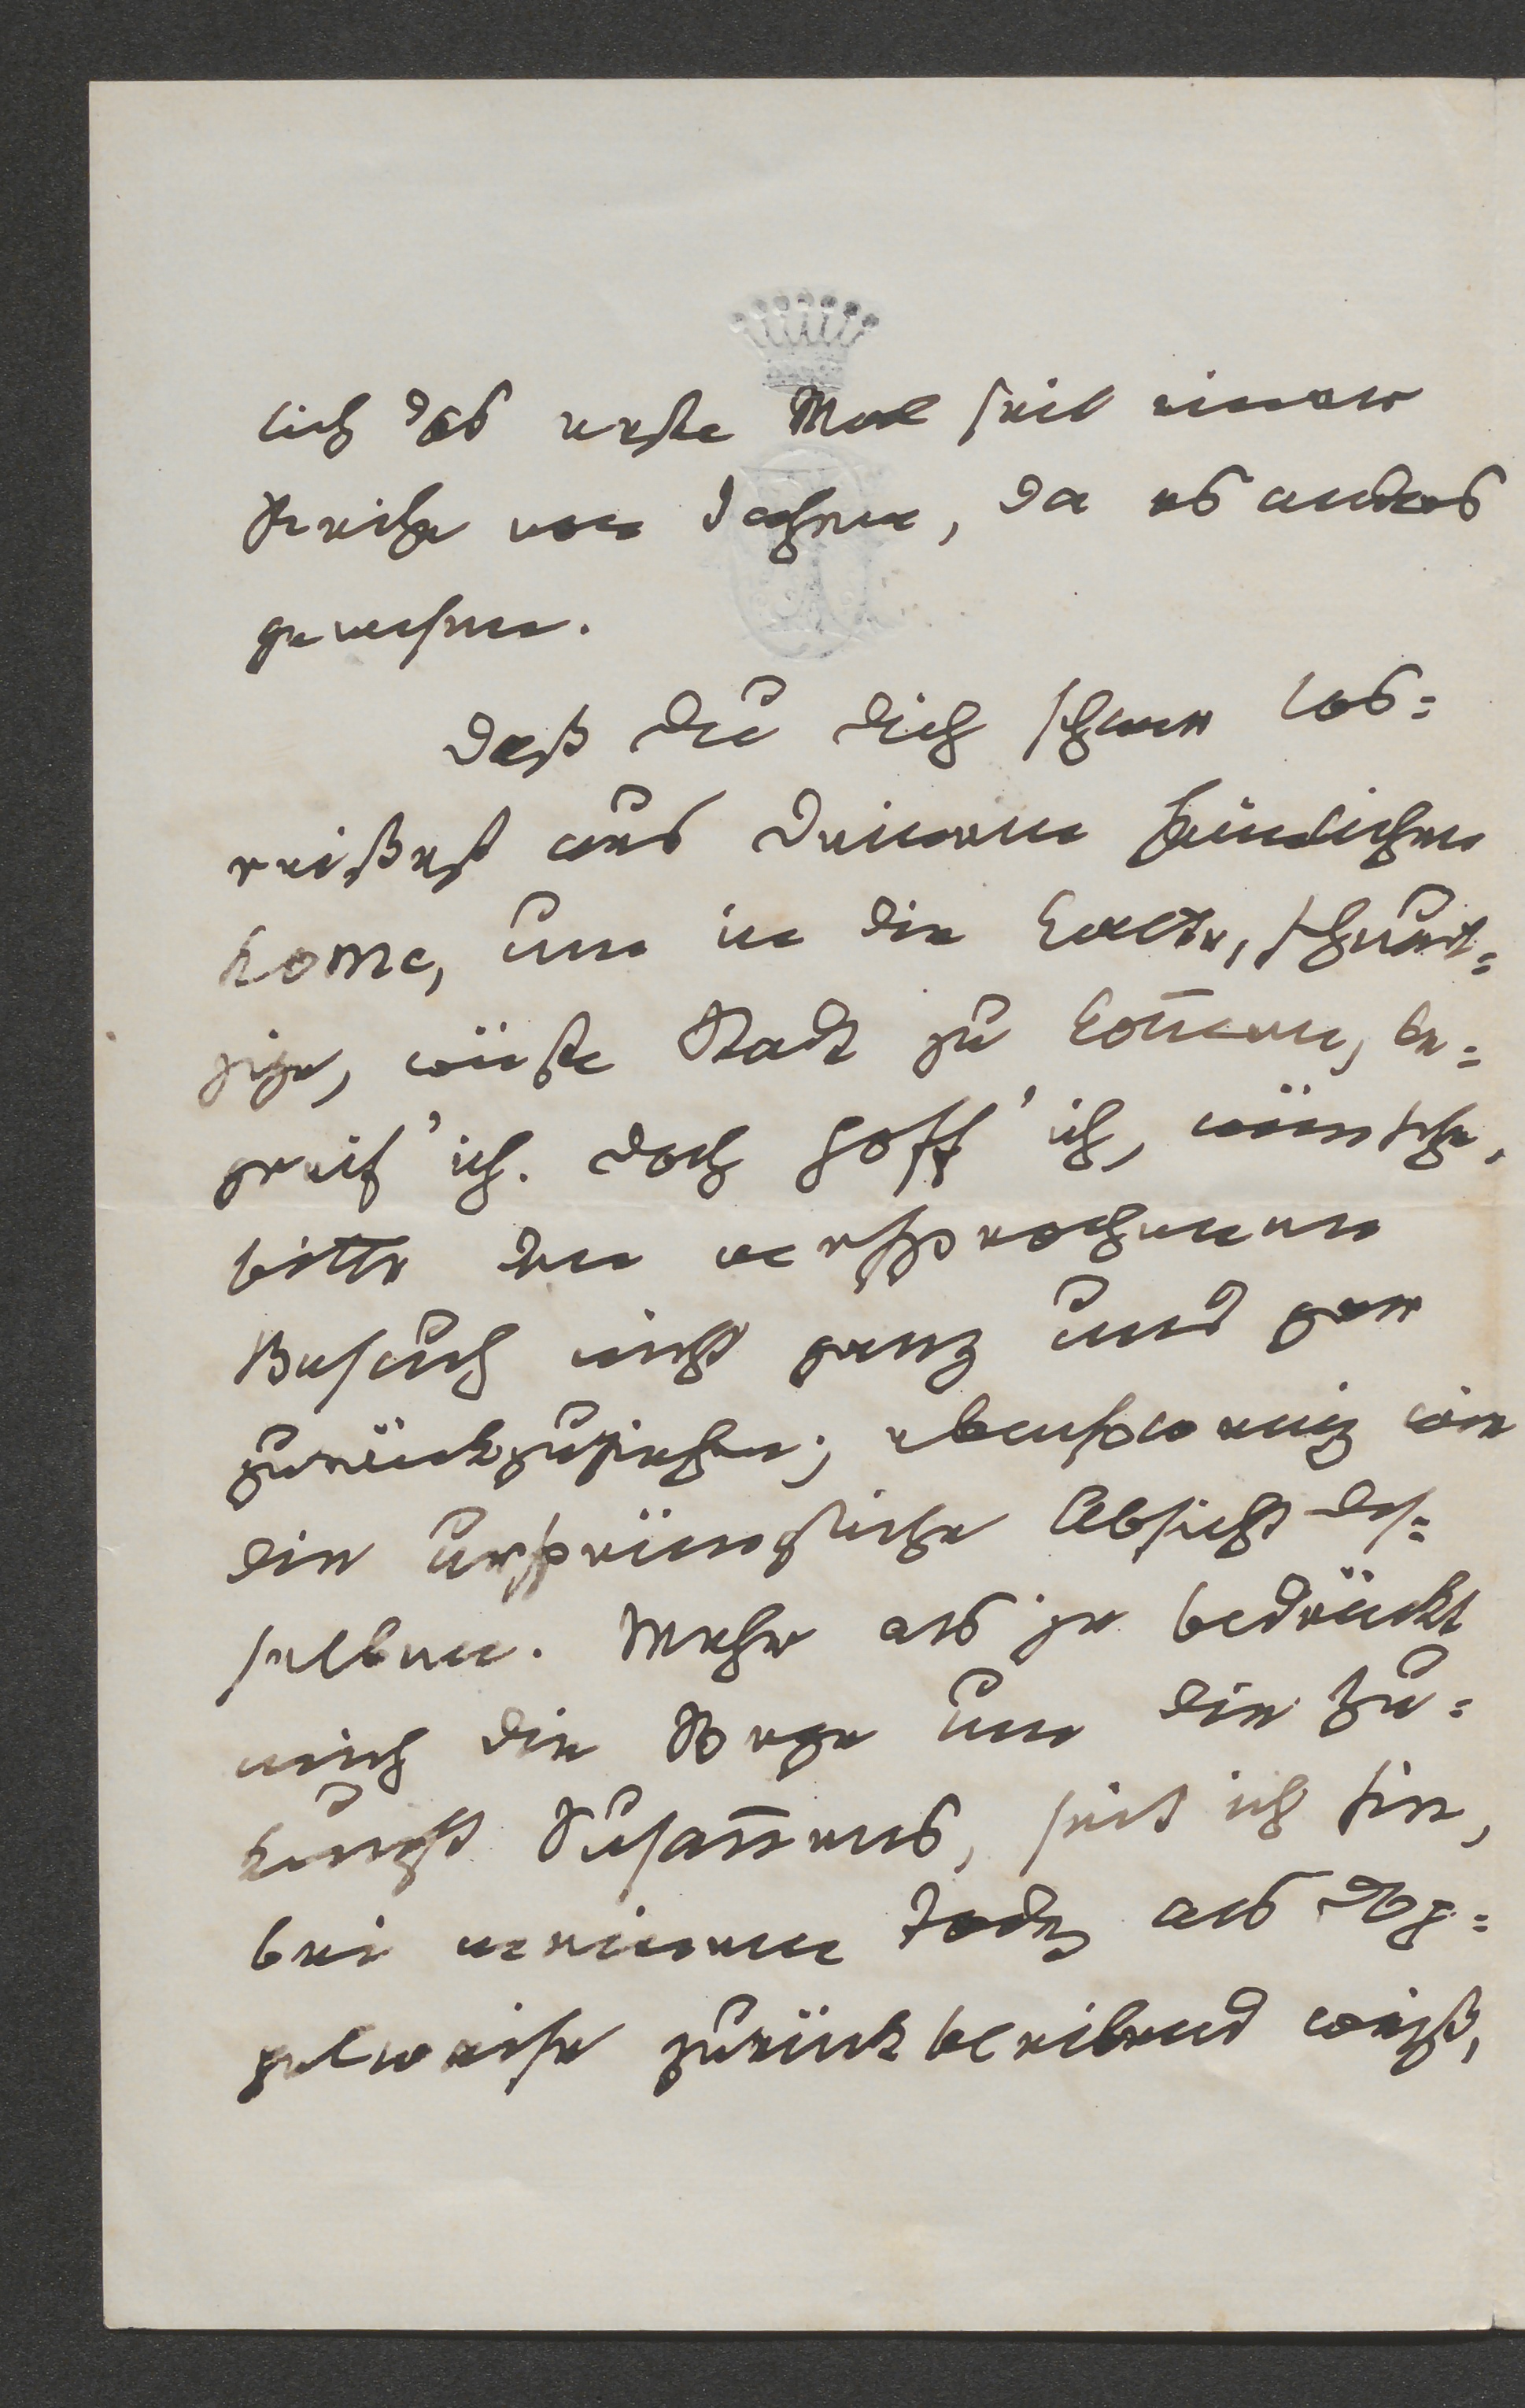 lich das erste Mal seit einer
Reihe von Jahren, da es anders
gewesen.
Daß Du Dich schwer los=
reißest aus Deinem heimlichen
home, um in die kalte, schmut=
zige, wüste Stadt zu kom̄en, be=
greif' ich. Doch hoff' ich, wünsche,
bitte den versprochenen
Besuch nicht ganz und gar
zurückzuziehen; ebensowenig wie
die ursprüngliche Absicht des=
selben. Mehr als je bedrückt
mich die Sorge um die Zu=
kunft Susan̄ens, seit ich sie,
bei meinem Tode, als
zurückbleibend weiß,